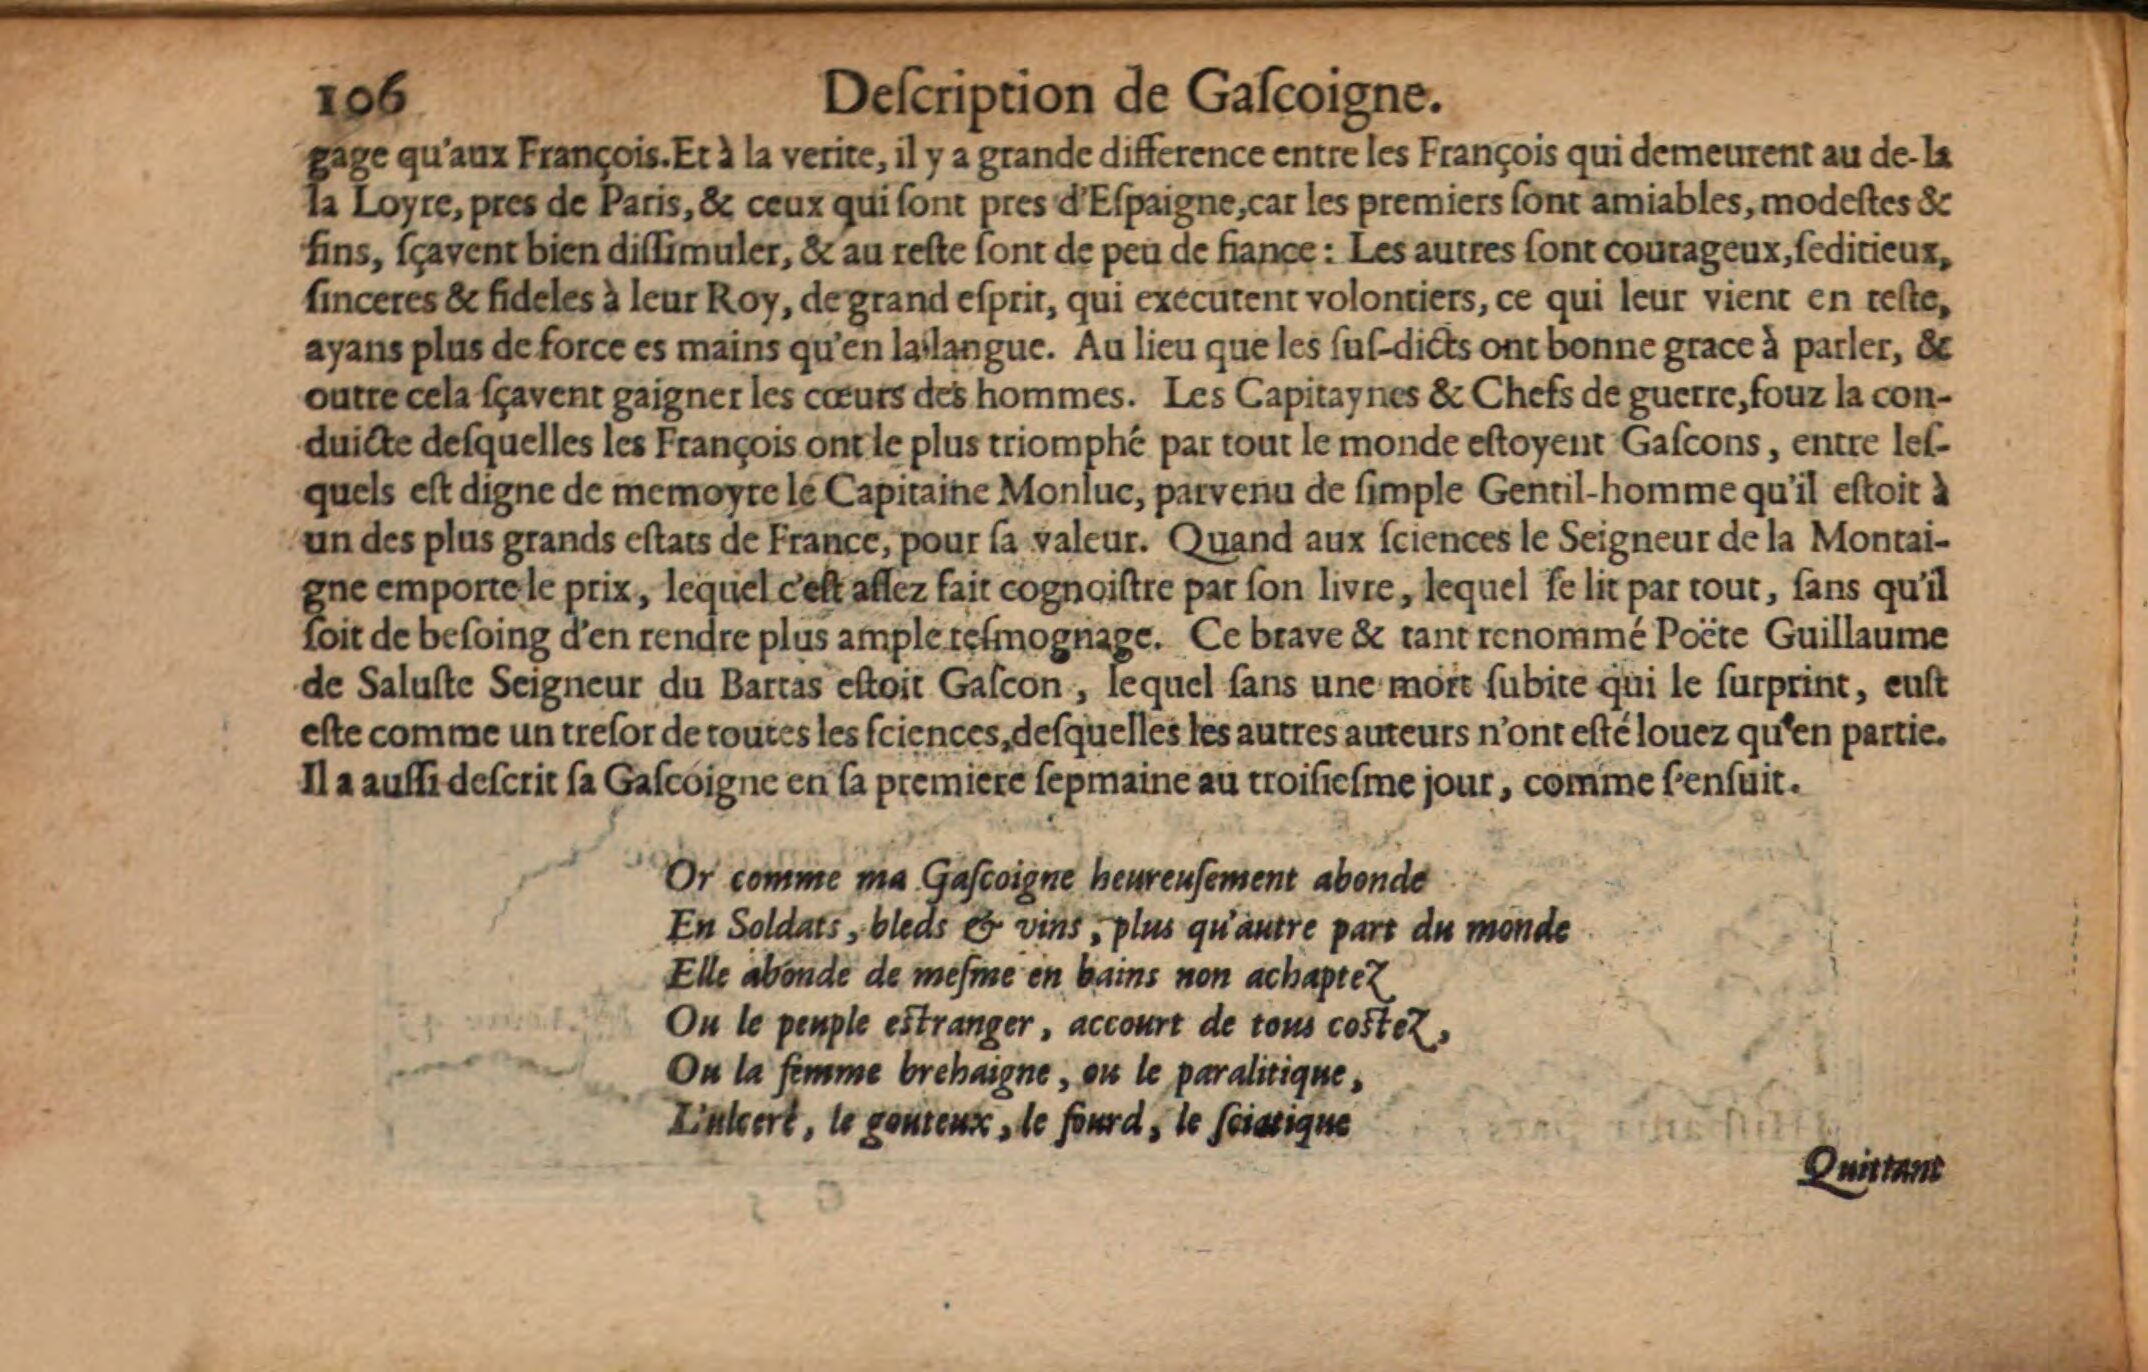 106 Deſcription de Gaſcoigne.
gage qu'aux François. Et à la verite, il y a grande difference entre les François qui demeurent au de-la
la Loyre, pres de Paris, & ceux qui ſont pres d'Eſpaigne, car les premiers ſont amiables, modeſtes &
fins, ſçavent bien diſſimuler, & au reſte ſont de peu de fiance: Les autres ſont courageux, ſeditieux,
ſinceres & fideles à leur Roy, de grand eſprit, qui executent volontiers, ce qui leur vient en teſte,
ayans plus de force es mains qu'en la langue. Au lieu que les ſuſ-dicts ont bonne grace à parler, &
outre cela ſçavent gaigner les cœurs des hommes. Les Capitaynes & Chefs de guerre, ſouz la con-
duicte deſquelles les François ont le plus triomphé par tout le monde eſtoyent Gaſcons, entre leſ-
quels eſt digne de memoyre le Capitaine Monluc, parvenu de ſimple Gentil-homme qu'il eſtoit à
un des plus grands eſtats de France, pour ſa valeur. Quand aux ſciences le Seigneur de la Montai-
gne emporte le prix, lequel c'eſt aſſez fait cognoiſtre par ſon livre, lequel ſe lit par tout, ſans qu'il
ſoit de beſoing d'en rendre plus ample teſmognage. Ce brave & tant renommé Poëte Guillaume
de Saluſte Seigneur du Bartas eſtoit Gaſcon, lequel ſans une mort ſubite qui le ſurprint, euſt
eſte comme un treſor de toutes les ſciences, deſquelles les autres auteurs n'ont eſté louez qu'en partie.
Il a auſſi deſcrit ſa Gaſcoigne en ſa premiere ſepmaine au troiſieſme jour, comme ſ'enſuit.
Or comme ma Gaſcoigne heureuſement abonde
En Soldats, bleds & vins, plus qu'autre part du monde
Elle abonde de meſme en bains non achaptez
Ou le peuple eſtranger, accourt de tous coſtez,
Ou la femme brehaigne, ou le paralitique,
L'ulceré, le gouteux, le ſourd, le ſciatique
Quittant